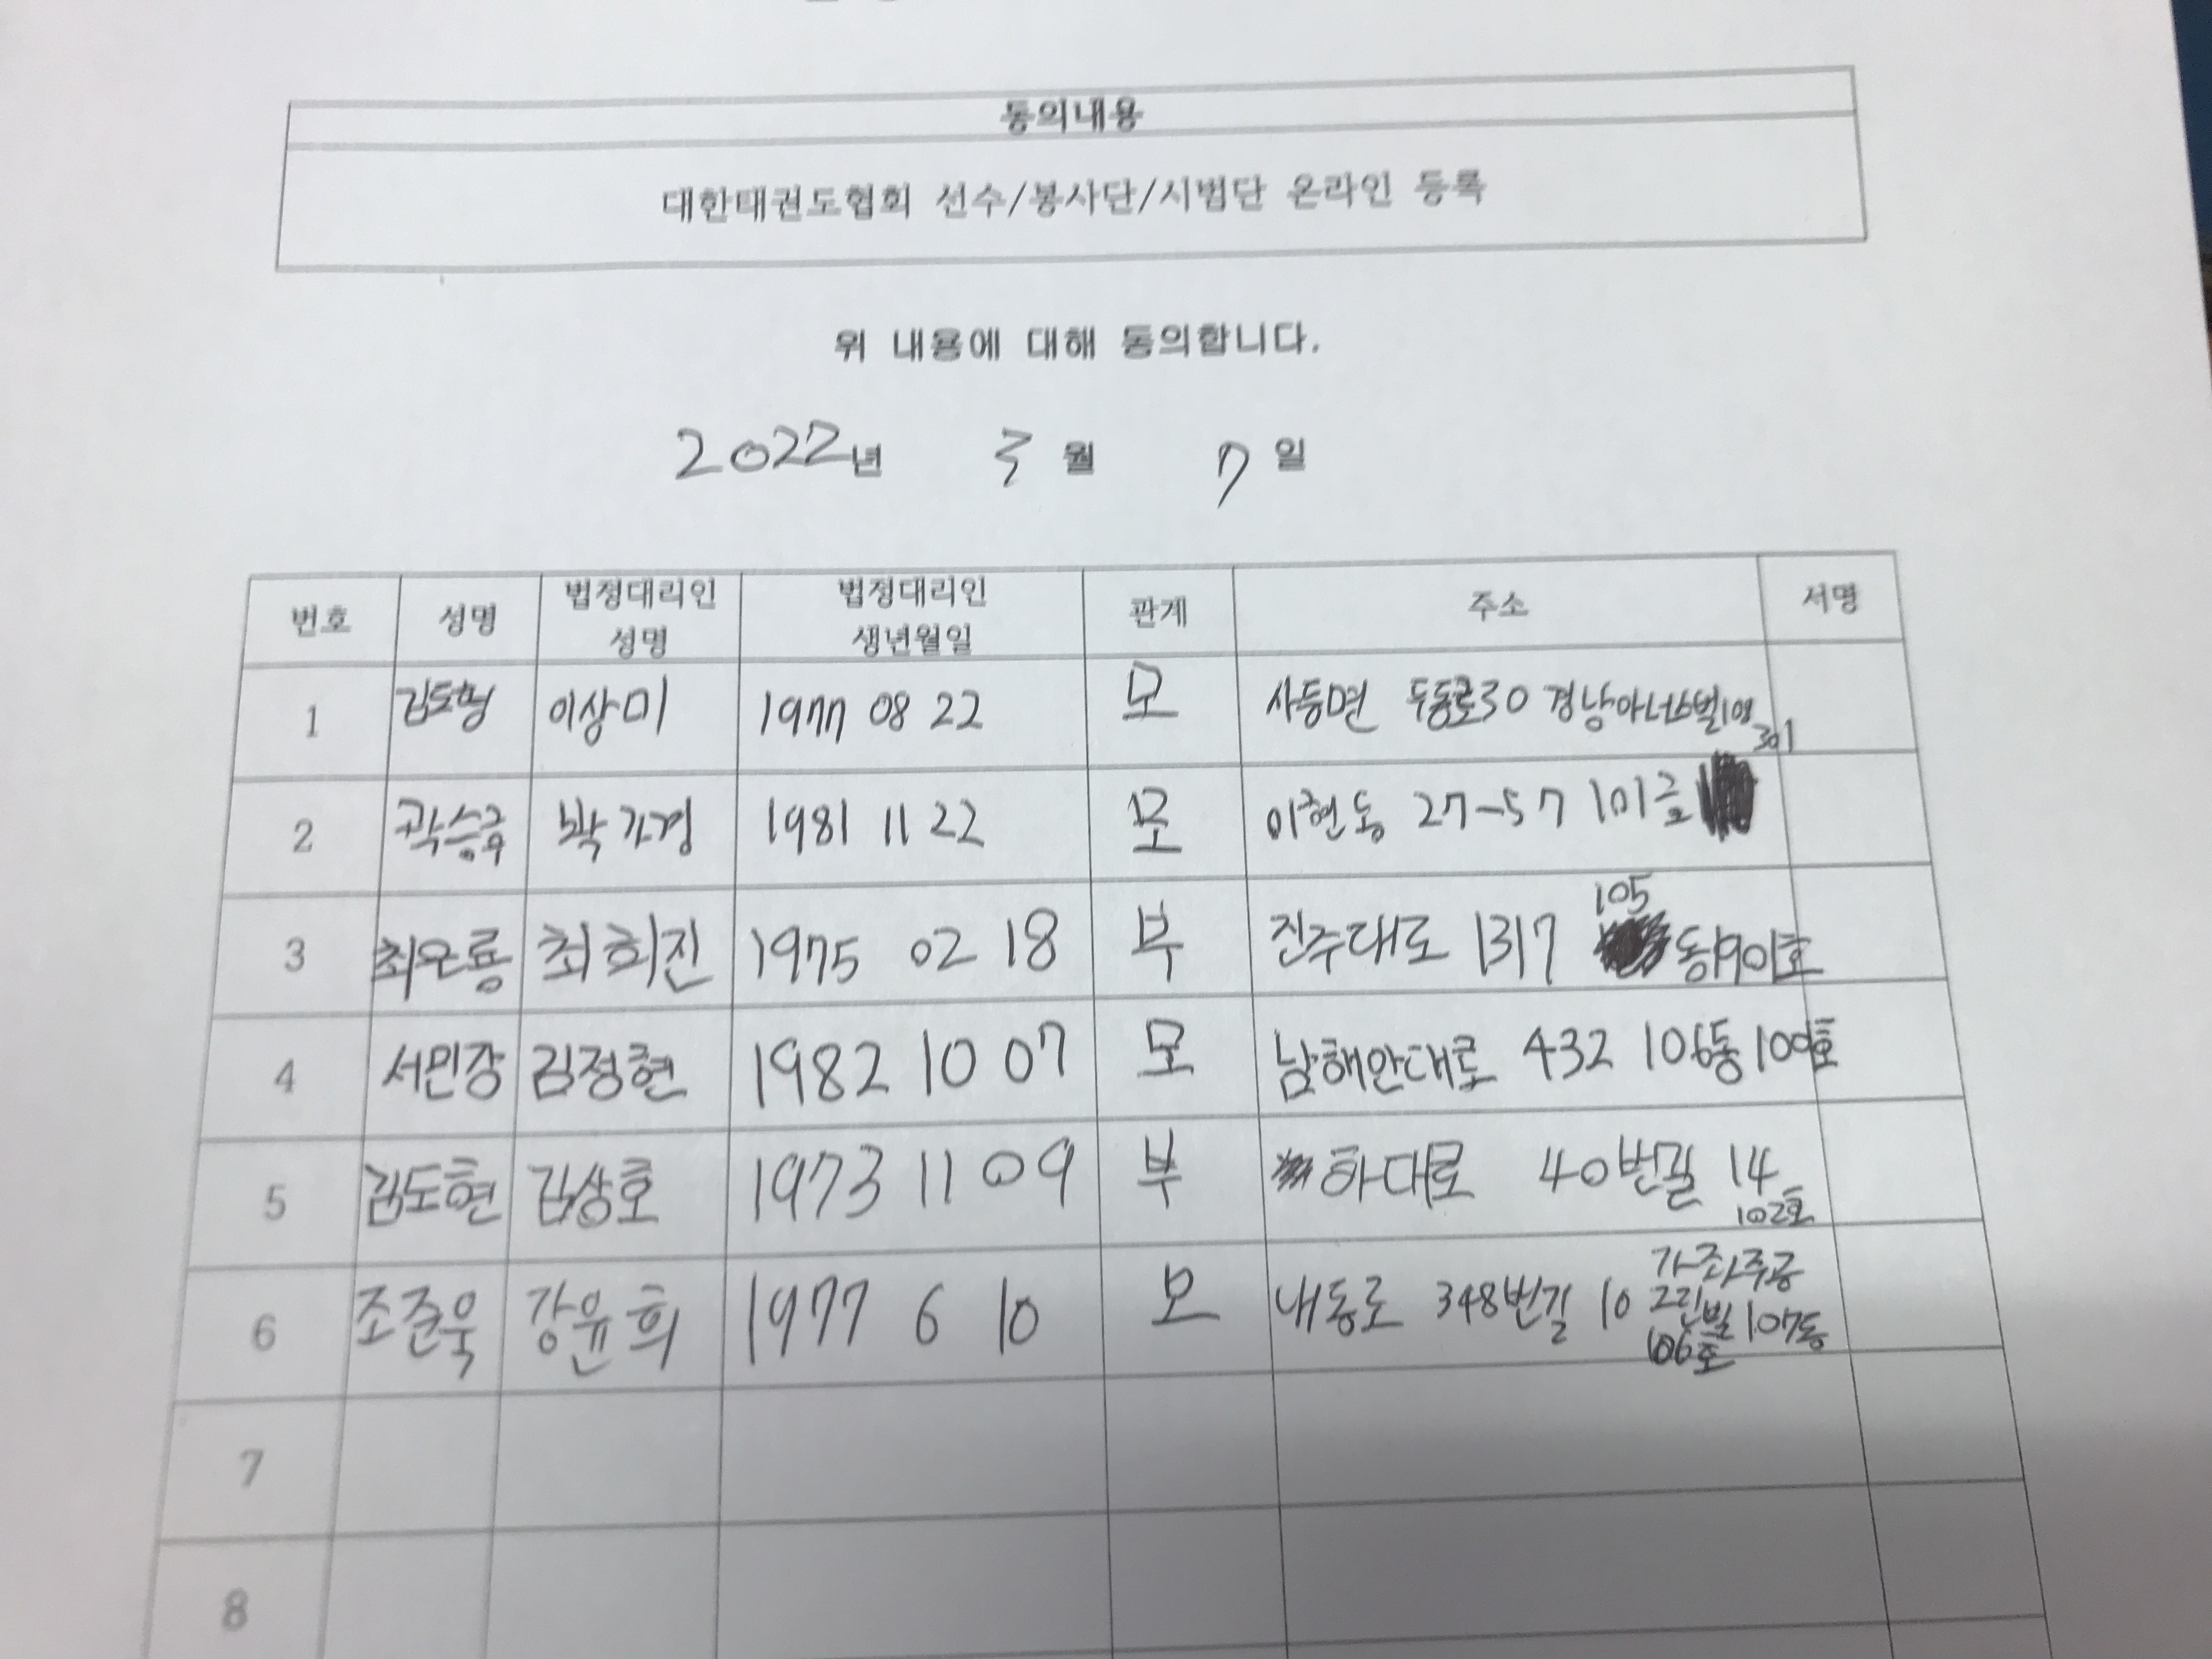 동의내용
대한태권도협회 선수/봉사단/시범단 온라인 등록
위 내용에 대해 동의합니다.
2022년 3월 7일
번호 성명 법정대리인 성명 법정대리인 생년월일 관계 주소 서명
1 김도형 이상미 1977 08 22 모 사등면 두동로30 경남아너스빌 301
2 곽승규 박가경 1981 11 22 모 이현동 27-57 101호
3 최은룡 최희진 1975 02 18 부 진주대로 1317 105동1901호
4 서민강 김정현 1982 10 07 모 남해안대로 432 106동
5 김도현 김상호 1973 11 09 부 하대로 40번길 14 102호
6 조준욱 강윤희 1977 6 10 모 내동로 348번길 10 가좌주공 그린빌 107동 106호
7
8